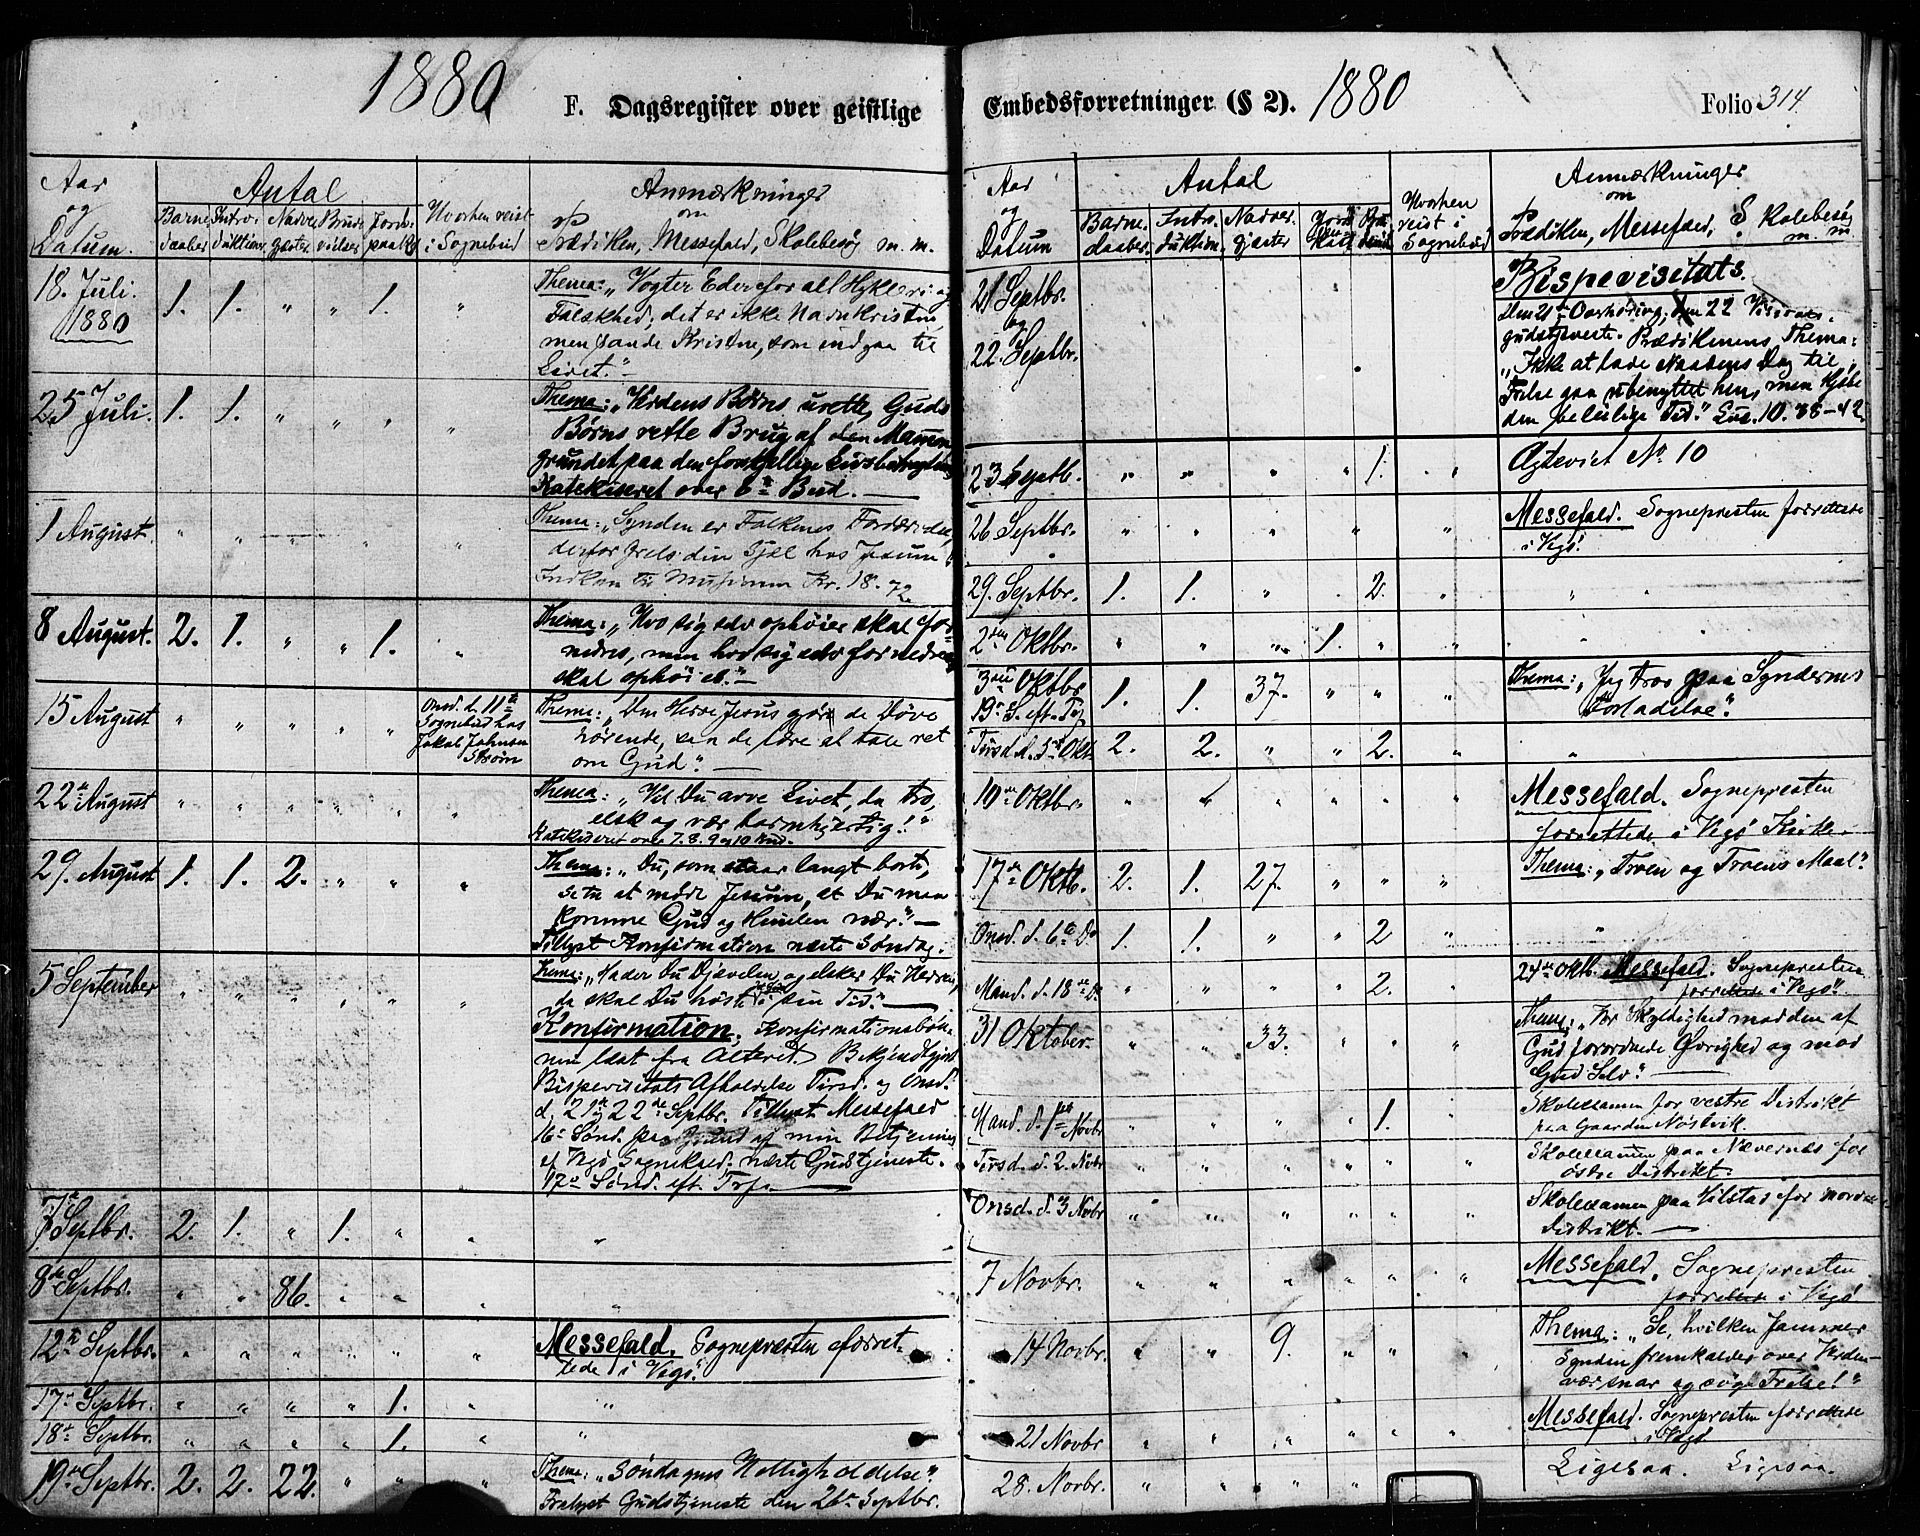 1880
F. Dagsregister over geistlige
Aar
og
Datum.
Antal
Barne-
daaber
Intro-
duktion.
Nadver
gjæster
Brude
vielser
Jords-
paak.
Hvorhen reist
i Sognebud
Anmærkninger
om
Prædiken, Messefald, Skolebesøg m. m.
18. Juli.
1880
1. 1. " " 1. "
Thema: „Vogter Eder for alt Hykleri og
Falskhed, det er ikke Navnkristne,
men sande Kristne, som indgaa til
Livet."
25 Juli. 1. 1. " " " "
Thema: „Verdens Børns urette, Guds
Børns rette Brug af den Mammon
grundet paa den forskjellige Livsbetragtning
Katekiseret over 6te Bud.
1 August. " " " " "
Thema: „Synden er Folkenes Fordærvelse,
derfor frels din Sjæl hos Jesum"
Indkom til Missionen Kr. 18.72
8 August. 2. 1. " " 1. "
Thema: „Hvo sig selv ophøier skal for-
nedres, men hvo sig selv fornedrer
skal ophøies."
15 August " " " " "
Onsd. d. 11te
Sognebud hos
Jakob Johnsen
Strøm
Thema: „Den Herre Jesus gjør de Døve
hørende, saa de lære at tale ret
om Gud."
22de August " " " " " "
Thema: „Vil Du arve Livet, da tro,
elsk og vær barmhjertig!"
Katekiseret over 7. 8. 9 og 10 Bud.
29. August 1. 1. 2. " " "
Thema: „Du, som staar langt borte,
se til at møde Jesum, at Du maa
komme Gud og Himlen nær."
Tillyst Konfirmation næste Søndag.
5 September " " " " " "
Thema: „Hader Du Djævelen og elsker Du Herren,
da skal Du høste i sin Tid."
Konfirmation. Konfirmationsbøn-
nen læst fra Alteret. Bekjendtgjort
Bispevisitats Afholdelse Tirsd. og Onsd.
d. 21de og 22de Septbr. Tillyst Messefald
16de Sønd. paa Grund af min Betjening
af Vegø Sognekald. næste Gudstjeneste
17de Sønd. eft. Tref.
7de Septbr. 2. 1. " 1. " " "
8de Septbr. " " 86. " " " "
12te Septbr. " " " " " "
Messefald. Sognepresten forret-
tede i Vegø.
17de Septbr. " " " " 1. "
18de Septbr. " " " " 1. " "
19de Septbr. 2. 2. 22. " " "
Thema: „Søndagens Helligholdelse".
Fralyst Gudstjeneste den 26de Septbr.
Embedsforretninger (§ 2). 1880
Folio 314
Aar
og
Datum
Antal
Barne-
daaber.
Intro-
duktion.
Nadver-
gjæster
Hvorhen
reist i
Sognebud
Anmærkninger
om
Prædiken, Messefald, Skolebesøg
m. m
21 Septbr.
og
22 Septbr.
Bispevisitats
den 21de Overhøring, den 22 Visitats-
gudstjeneste. Prædikenens Thema:
„Ikke at lade Naadens Dag til
Frelse gaa ubenyttet hen, men kjøbe
den beleilige Tid." Luc. 10. 38-42
23 Septb. " " " " 1. "
Ægteviet No 10
26 Septbr. " " " " "
Messefald. Sognepresten forrettede
i Vegø.
29. Septbr. 1. 1. " . 2. " "
2den Oktbr. " " " 1. " " "
3die Oktbr
19de S. eft. Tref
1. 1. 37. " " "
Thema: „Jeg tror paa Syndernes
Forladelse".
Tirsd. d. 5te Okt. 2. 2. " " 2. " "
10de Oktbr. " " " " " "
Messefald. Sognepresten
forrettede i Vegø Kirke.
17de Oktb. 2. 1. 27. " " "
Thema: „Troen og Troens Maal".
Onsd. d. 6te Do 1. 1. " " 2 " "
Mand. d. 18de Do " " " " 2. "
24de Oktb. Messefald. Sognepresten
forrettede i Vegø.
31 Oktober. " " 33. " " "
Thema: „Vor Skyldighed mod den af
Gud forordnede Øvrighed og mod
Gud Selv."
Mand. d. 1ste Novbr " " " " 1. "
Skolexamen for vestre Distrikt
paa Gaarden Nøstvik.
Tirsd. d. 2. Novbr " " " " " "
Skolexamen paa Nævernes for
østre Distrikt.
Onsd. d. 3 Novbr " " " " " "
Skolexamen paa Vilstad for nordre
Distrikt.
7 Novbr. " " " " " "
Messefald. Sognepresten
forrettede i Vegø
14 Novbr. " " 9. " " "
Thema: „Se, hvilken Jammer
Synden fremkalder over Verden-
vær snar og søg Frelse!"
21 Novbr " " " " " "
Messefald. Sognepresten forrettede
i Vegø
28. Novbr. " " " " "
Ligesaa. Ligesaa.